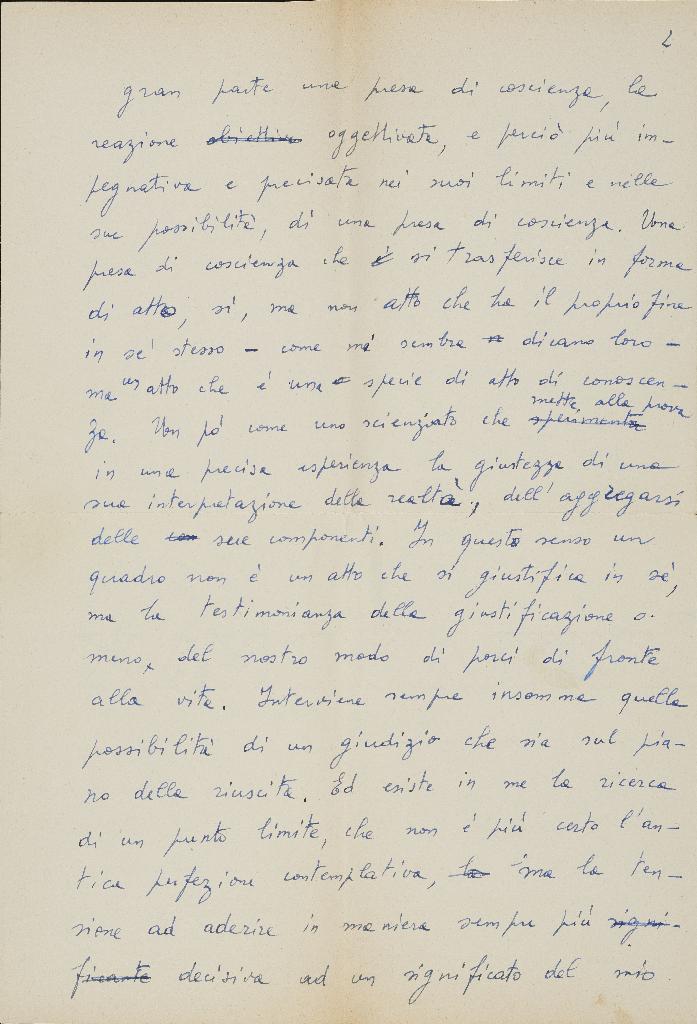 2
gran parte una presa di coscienza, la
reazione obiettiva oggettivata, e perciò più im-
pegnativa e precisata nei suoi limiti e nelle
sue possibilità, di una presa di coscienza. Una
presa di coscienza che è si trasferisce in forma
di atto, sì, ma non atto che ha il proprio fine
in sé stesso – come mi sembra dicano loro –
ma un atto che è una specie di atto di conoscen-
za. Un pò come uno scienziato che sperimenta mette alla prova
in una precisa esperienza la giustezza di una
sua interpretazione della realtà, dell'aggregarsi
delle con sue componenti. In questo senso un
quadro non è un atto che si giustifica in sé,
ma la testimonianza della giustificazione o
meno, del nostro modo di porci di fronte
alla vita. Interviene sempre insomma quella
possibilità di un giudizio che sia sul pia-
no della riuscita. Ed esiste in me la ricerca
di un punto limite, che non è più certo l'an-
tica perfezione contemplativa, la ma la ten-
sione ad aderire in maniera sempre più signi-
ficante decisiva ad un significato del mio